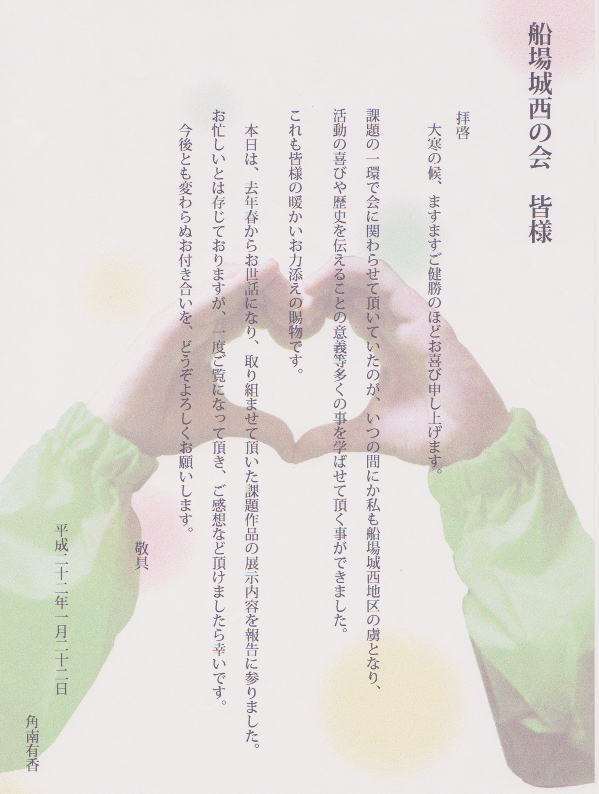 船場城西の会　皆様
拝啓
大寒の候、ますますご健勝のほどお喜び申し上げます。
課題の一環で会に関わらせて頂いていたのが、いつの間にか私も船場城西地区の虜となり、
活動の喜びや歴史を伝えることの意義等多くの事を学ばせて頂く事ができました。
これも皆様の暖かいお力添えの賜物です。
本日は、去年春からお世話になり、取り組ませて頂いた課題作品の展示内容を報告に参りました。
お忙しいとは存じておりますが、一度ご覧になって頂き、ご感想など頂けましたら幸いです。
今後とも変わらぬお付き合いを、どうぞよろしくお願いします。
敬具
平成二十二年一月二十二日
角南有香